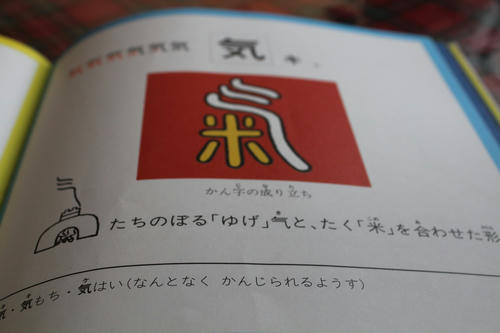 気 キ、
氣
かん字の成り立ち
たちのぼる「ゆげ」气と、たく「米」を合わせた形
気もち・気はい(なんとなく かんじられるようす)